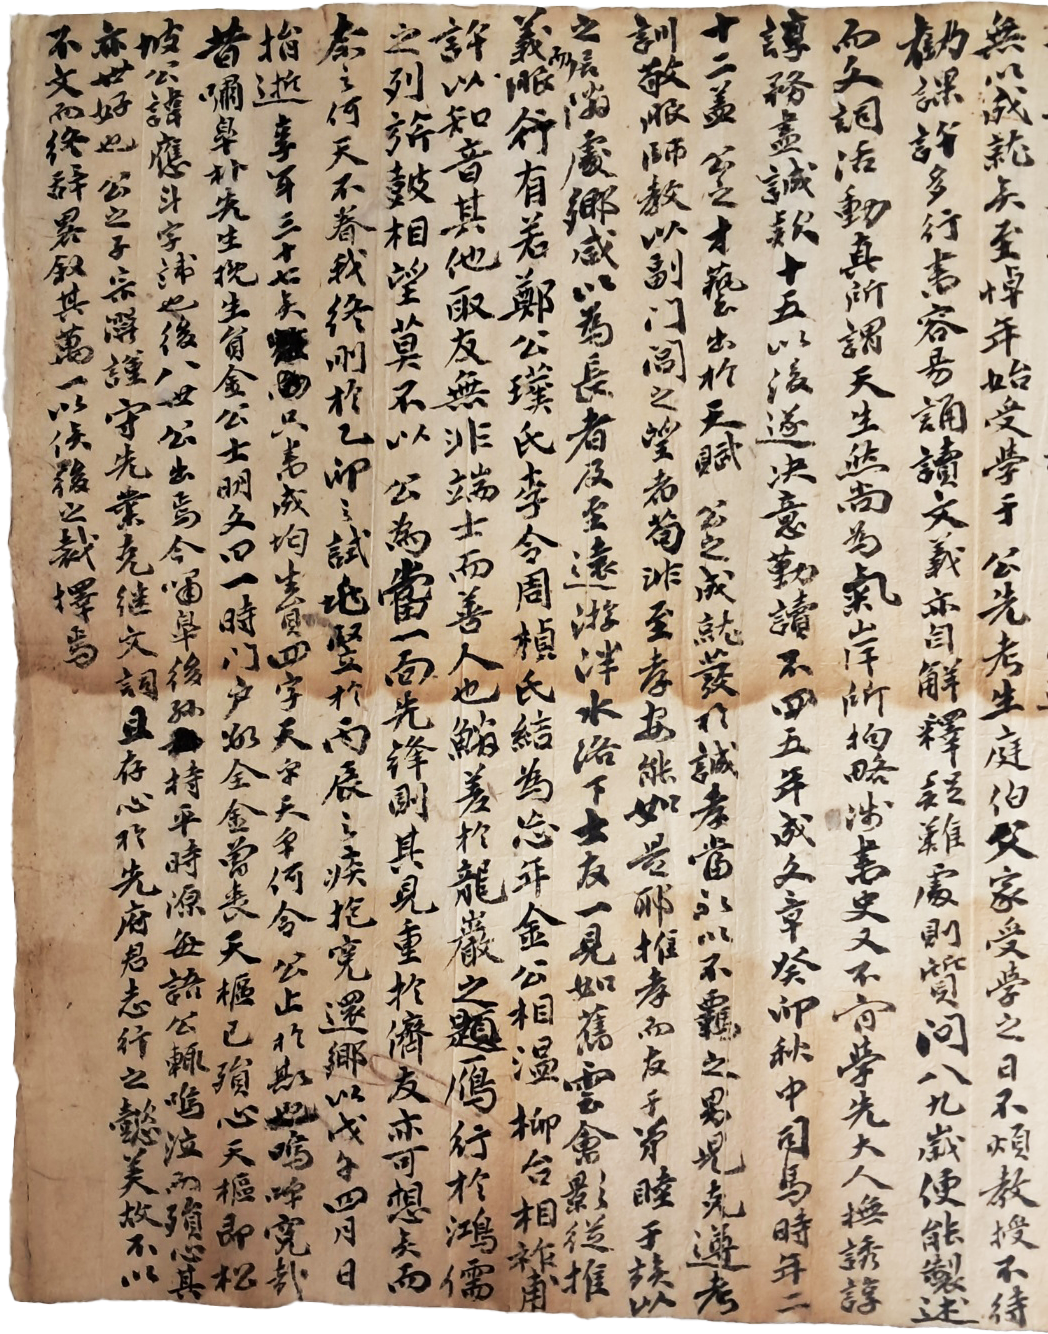 無以成就矣至悼年始受學于 公先考生庭伯父家受學之日不煩敎授不待
勸課許多行書容易誦讀文義亦自解釋疑難處則質問八九歲便能製述
而文詞活動真所謂天生然尚爲氣岸所拘略涉書史又不肯學先大人撫誘諄
諄務盡誠款十五以後遂決意勤讀不四五年成文章癸卯秋中司馬時年二
十二盖 公之才藝出於天賦 公之成就發於誠孝當 以不羈之 兒克遵考
訓敬服師敎以副门閭之望者苟非至孝安能如是耶推孝而友于弟睦于族以
之居 處鄉咸以爲長者及至遠遊泮水洛下士友一見如舊雲會影從推
義服行有若鄭公璞氏李令周楨氏結爲忘年金公相温柳台相祚甫
許以知音其他取友無非端士而善人也鱗差於龍巖之題鴈行於鴻儒
之列旂鼓相望莫不以 公爲當一面先鋒則其見重於儕友亦可想矣而
奈之何天不眷我終刖於乙卯之試 豎於丙辰之疾抱寃還鄉以戊午四月日
捐逝享年三十七矣 只書成均生員四字天乎天乎何令 公止於斯也嗚呼寃哉
昔嘯皐朴先生挽生員金公士明文曰一時门户 全金曾丧天樞已殞心天樞即松
坡公諱應斗字 也後八世公出焉今嘯皐後孫 持平時源每語公輒嗚泣而殞心其
亦世好也 公之子宗 謹守先業克继文詞且存心於先府君志行之懿美故不以
不文而終辞畧叙其萬一以俟後之裁擇焉